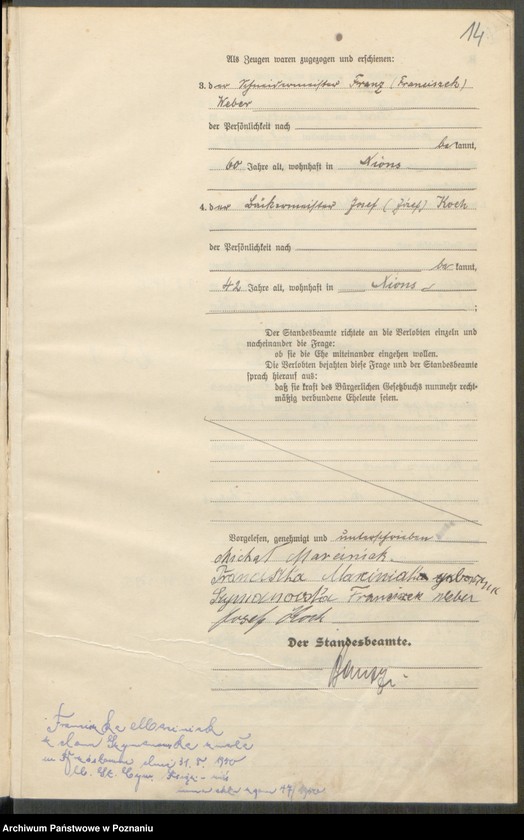 14
Als Zeugen waren zugezogen und erschienen:
3. der Schneidermeister Franz (Franciszek)
Weber
der Persönlichkeit nach
bekannt,
60 Jahre alt, wohnhaft in Xions
4. der Bäckermeister Josef (Józef) Koch
der Persönlichkeit nach
bekannt,
42 Jahre alt, wohnhaft in Xions
;
Der Standesbeamte richtete an die Verlobten einzeln und
nacheinander die Frage:
ob sie die Ehe miteinander eingehen wollen.
Die Verlobten bejahten diese Frage und der Standesbeamte
sprach hierauf aus:
daß sie kraft des Bürgerlichen Gesetzbuchs nunmehr recht-
mäßig verbundene Eheleute seien.
Vorgelesen, genehmigt und unterschrieben
Michał Marciniak.
Franciszka
Franciszek Weber
Josef Koch
Der Standesbeamte.
z domu
dnia 31. 5. 1950
Archiwum Państwowe w Poznaniu